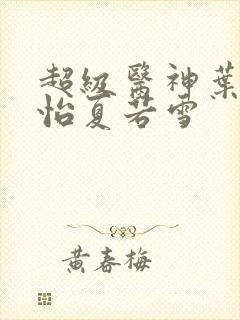 超級醫神葉
怡夏若雪
黃春梅